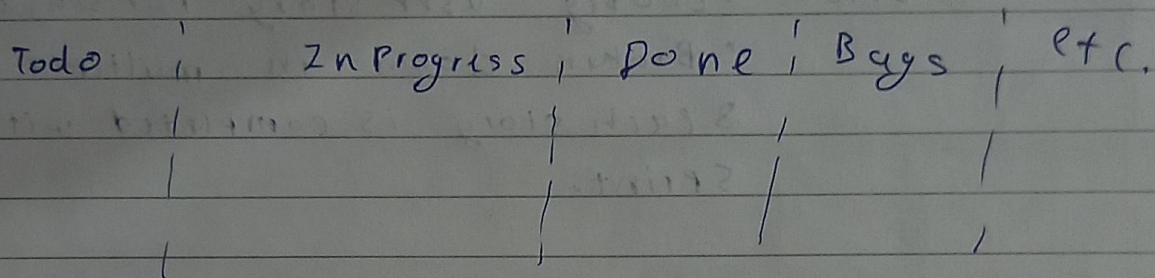 Todo In Progress Done Bugs etc.